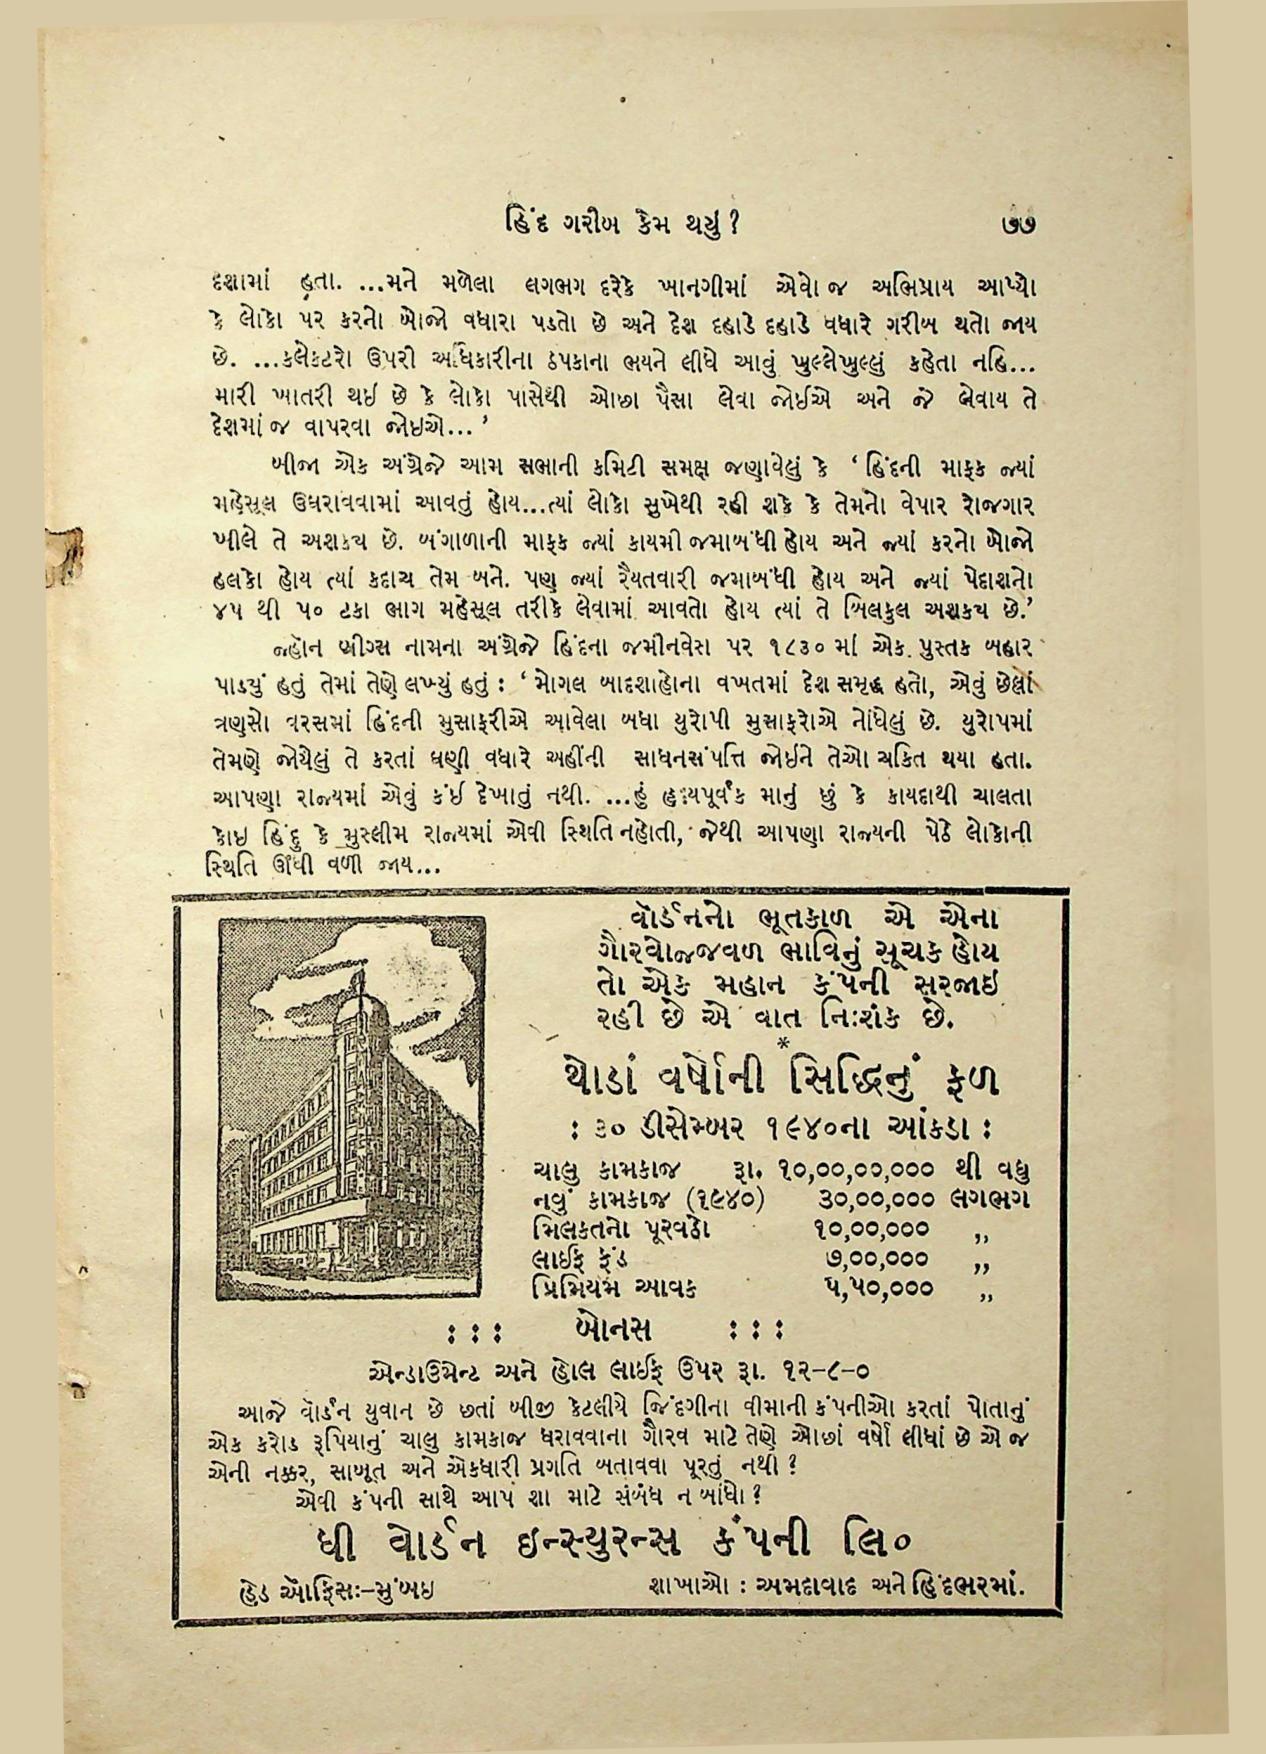 હિંદ ગરીબ કેમ થયું ?
૭૭
દશામાં હતા. ...મને મળેલા લગભગ દરેકે ખાનગીમાં એવો જ અભિપ્રાય આપ્યો
કે લોકો પર કરનો બોજો વધારા પડતો છે અને દેશ દહાડે દહાડે વધારે ગરીબ થતો જાય
છે. ...કલેકટરો ઉપરી અધિકારીના ઠપકાના ભયને લીધે આવું ખુલ્લેખુલ્લું કહેતા નહિ...
મારી ખાતરી થઈ છે કે લોકો પાસેથી ઓછા પૈસા લેવા જોઈએ અને જે લેવાય તે
દેશમાં જ વાપરવા જોઇએ...’
બીજા એક અંગ્રેજે આમ સભાની કમિટી સમક્ષ જણાવેલું કે ‘ હિંદની માફક જ્યાં
મહેસૂલ ઉઘરાવવામાં આવતું હોય...ત્યાં લોકો સુખેથી રહી શકે કે તેમનો વેપાર રોજગાર
ખીલે તે અશક્ય છે. બંગાળાની માફક જ્યાં કાયમી જમાબંધી હોય અને જ્યાં કરનો બોજો
હલકો હોય ત્યાં કદાચ તેમ બને. પણ જ્યાં રૈયતવારી જમાબંધી હોય અને જ્યાં પેદાશનો
૪૫ થી ૫૦ ટકા ભાગ મહેસૂલ તરીકે લેવામાં આવતો હોય ત્યાં તે બિલકુલ અશક્ય છે.’
જ્હૉન બ્રીગ્સ નામના અંગ્રેજે હિંદના જમીનવેરા પર ૧૮૩૦ માં એક પુસ્તક બહાર
પાડયું હતું તેમાં તેણે લખ્યું હતું : ‘ મોગલ બાદશાહોના વખતમાં દેશ સમૃદ્ધ હતો, એવું છેલ્લાં
ત્રણસો વરસમાં હિંદની મુસાફરીએ આવેલા બધા યુરોપી મુસાફરોએ નોંધેલું છે. યુરોપમાં
તેમણે જોયેલું તે કરતાં ઘણી વધારે અહીંની સાધનસંપત્તિ જોઇને તેઓ ચકિત થયા હતા.
આપણા રાજ્યમાં એવું કંઈ દેખાતું નથી. ...હું હૃદયપૂર્વક માનું છું કે કાયદાથી ચાલતા
કોઇ હિંદુ કે મુસ્લીમ રાજ્યમાં એવી સ્થિતિ નહોતી, જેથી આપણા રાજ્યની પેઠે લોકોની
સ્થિતિ ઊંધી વળી જાય...
વૉર્ડનનો ભૂતકાળ એ એના
ગૌરવોજ્જવળ ભાવિનું સૂચક હોય
તો એક મહાન કંપની સરજાઇ
રહી છે એ વાત નિઃશંક છે.
*
થોડાં વર્ષોની સિદ્ધિનું ફળ
: ૩૦ ડીસેમ્બર ૧૯૪૦ના આંકડા :
ચાલુ કામકાજ રૂા. ૧૦,૦૦,૦૦,૦૦૦ થી વધુ
નવું કામકાજ (૧૯૪૦) ૩૦,૦૦,૦૦૦ લગભગ
મિલકતનો પૂરવઠો ૧૦,૦૦,૦૦૦ ,,
લાઈફ ફંડ ૭,૦૦,૦૦૦ ,,
પ્રિમિયમ આવક ૫,૫૦,૦૦૦ ,,
: : : બોનસ : : :
એન્ડાઉમેન્ટ અને હોલ લાઈફ ઉપર રૂા. ૧૨-૮-૦
આજે વૉર્ડન યુવાન છે છતાં બીજી કેટલીયે જિંદગીના વીમાની કંપનીઓ કરતાં પોતાનું
એક કરોડ રૂપિયાનું ચાલુ કામકાજ ધરાવવાના ગૌરવ માટે તેણે ઓછાં વર્ષો લીધાં છે એ જ
એની નક્કર, સાબૂત અને એકધારી પ્રગતિ બતાવવા પૂરતું નથી ?
એવી કંપની સાથે આપ શા માટે સંબંધ ન બાંધો ?
ધી વોર્ડન ઇન્સ્યુરન્સ કંપની લિ૦
હેડ ઑફિસઃ-મુંબઇ
શાખાઓ : અમદાવાદ અને હિંદભરમાં.